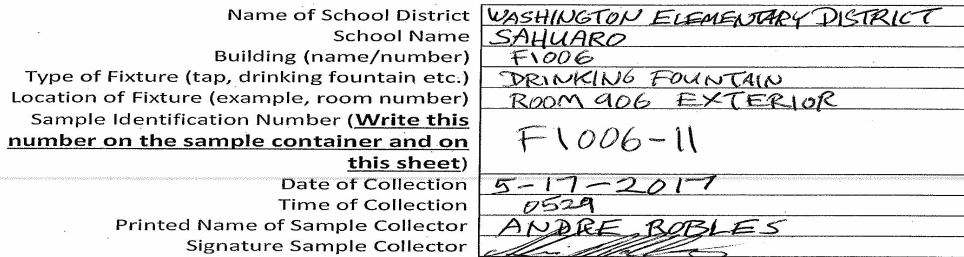 Name of School District WASHINGTON ELEMENTARY DISTRICT
School Name SAHUARO
Building (name/number) F1006
Type of Fixture (tap, drinking fountain etc.) DRINKING FOUNTAIN
Location of Fixture (example, room number) ROOM 906 EXTERIOR
Sample Identification Number (Write this
number on the sample container and on F1006-11
this sheet)
Date of Collection 5-17-2017
Time of Collection 0529
Printed Name of Sample Collector ANDRE ROBLES
Signature Sample Collector